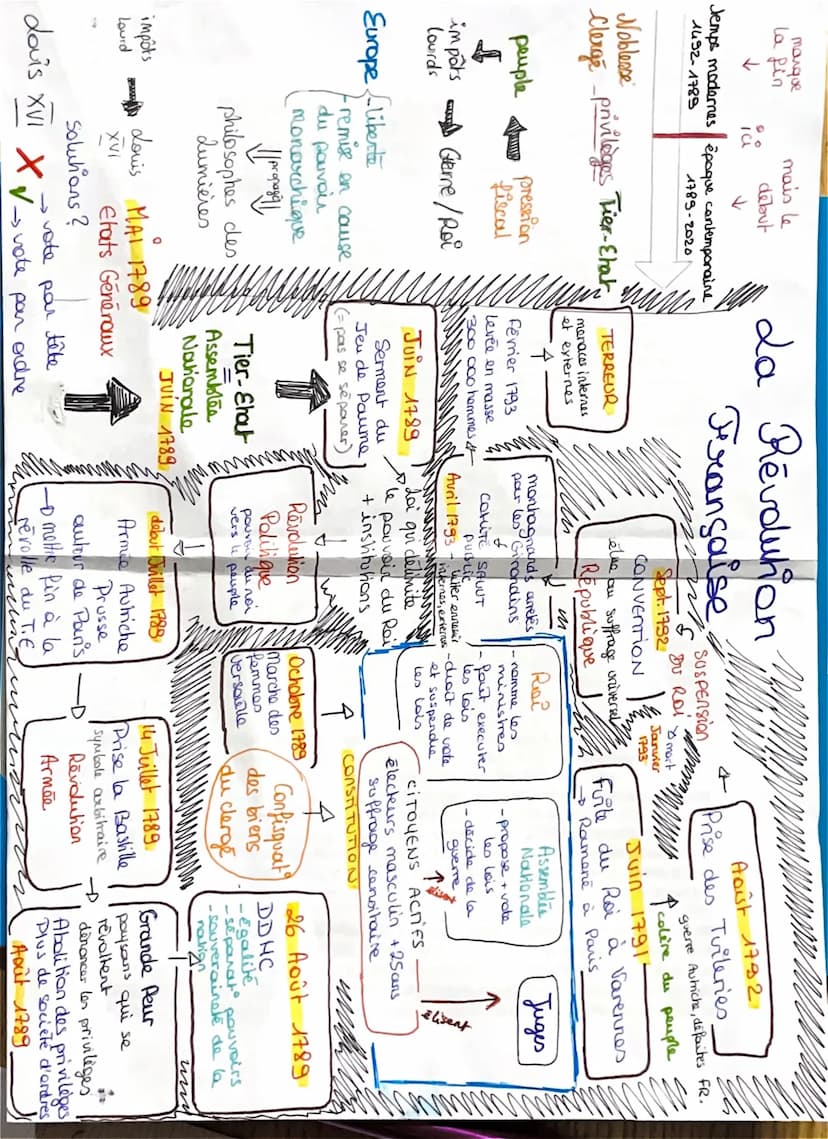 La Révolution
Française
marque
la fin
ici
mais le
début
Temps modernes
1492-1789
époque contemporaine
1789-2020
Noblesse
Clergé
- privilèges
Tier-Etat
peuple
pression
fiscal
impôts
lourds
Guerre / Roi
Europe
- liberté
- remise en cause
du pouvoir
monarchique
propagé
philosophes des
Lumières
impôts
lourd
Louis
XVI
MAI 1789
Etats Généraux
solutions?
Louis XVI
X → vote par tête
✓ → vote par ordre
JUIN 1789
Tier-Etat
=
Assemblée
Nationale
JUIN 1789
Serment du
Jeu de Paume
(= pas se séparer)
Loi qui délimite
le pouvoir du Roi
+ institutions
Révolution
Politique
pouvoir du roi
vers le peuple
début Juillet 1789
Armée Autriche
Prusse
autour de Paris
→ mettre fin à la
révolte du T.E
14 Juillet 1789
Prise la Bastille
symbole arbitraire
Révolution
Armée
Grande Peur
paysans qui se
révoltent
dénoncer les privilèges
Abolition des privilèges
Plus de société d'ordres
Août 1789
26 Août 1789
DDHC
- égalité
- séparat° pouvoirs
- souveraineté de la
nation
Octobre 1789
Marche des
femmes
Versaille
Confisquat°
des biens
du clergé
CONSTITUTION
Roi
- nomme les
ministres
- fait executer
les lois
- droit de vote
et suspendre
les lois
Assemblée
Nationale
- propose + vote
les lois
- décide de la
guerre
Juges
élisent
élisent
CITOYENS ACTIFS
électeurs masculin +25ans
suffrage censitaire
Juin 1791
Fuite du Roi à Varennes
→ Ramené à Paris
colère du peuple
guerre Autriche, défaites FR.
Août 1792
Prise des Tuileries
SUSPENSION
DU ROI
mort
Janvier
1793
Sept. 1792
CONVENTION
élue au suffrage universel
République
montagnards arrêtés
par les Girondins
COMITÉ SALUT
PUBLIC
Avril 1793
Février 1793
levée en masse
300 000 hommes
TERREUR
menaces internes
et externes